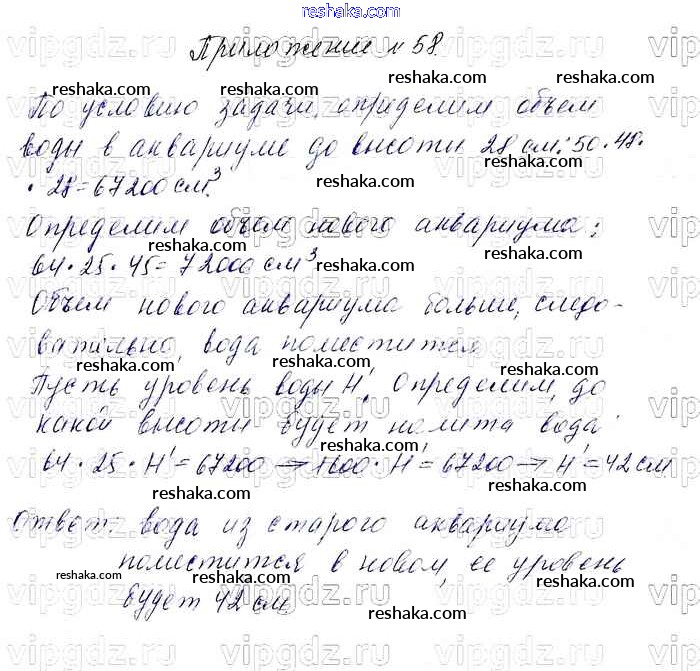 reshaka.com
Приложение №58
По условию задачи, определим объем
воды в аквариуме до высоты 28 см: 50·48·
·28=67200 см³
Определим объем нового аквариума:
64·25·45=72000 см³
Объем нового аквариума больше, следо-
вательно, вода поместится
Пусть уровень воды H', определим, до
какой высоты будет налита вода
64·25·H'=67200→1600·H'=67200→H'=42 см
Ответ: вода из старого аквариума
поместится в новом, ее уровень
будет 42 см